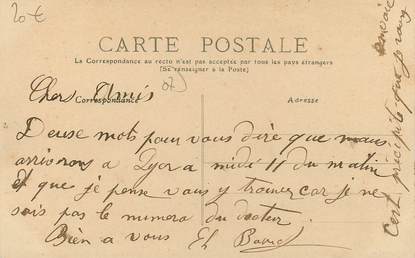 20€
CARTE POSTALE
La Correspondance au recto n'est pas acceptée par tous les pays étrangers
(Se renseigner à la Poste)
07)
Correspondance
Adresse
Chers Amis
Deuse mots pour vous dire que nous
arriverons a Lyon a midi 11 du matin
et que je pense vous y trouver car je ne
sais pas le numero du docteur.
Bien a vous
C'est précipité que je vous
envoie